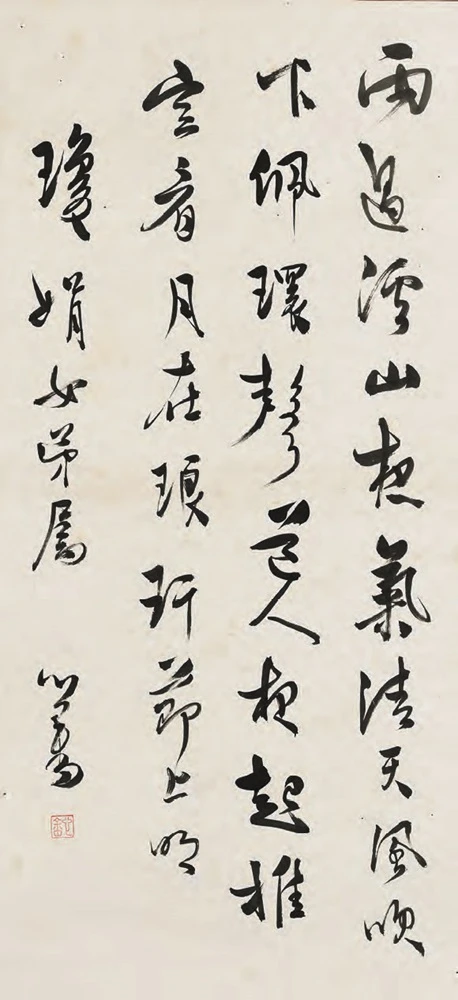 雨過山夜氣清天風吹
下佩環聲道人夜起推
窗看月在琅玕節上明
瓊娟女弟屬 心畬